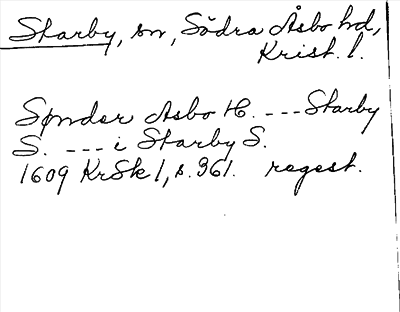 Starby, sn, Södra Åsbo hd,
Krist. l.
Sønder Asbo H. --- Starby
S. --- i Starby S.
1609 KrSk 1, s. 361. regest.